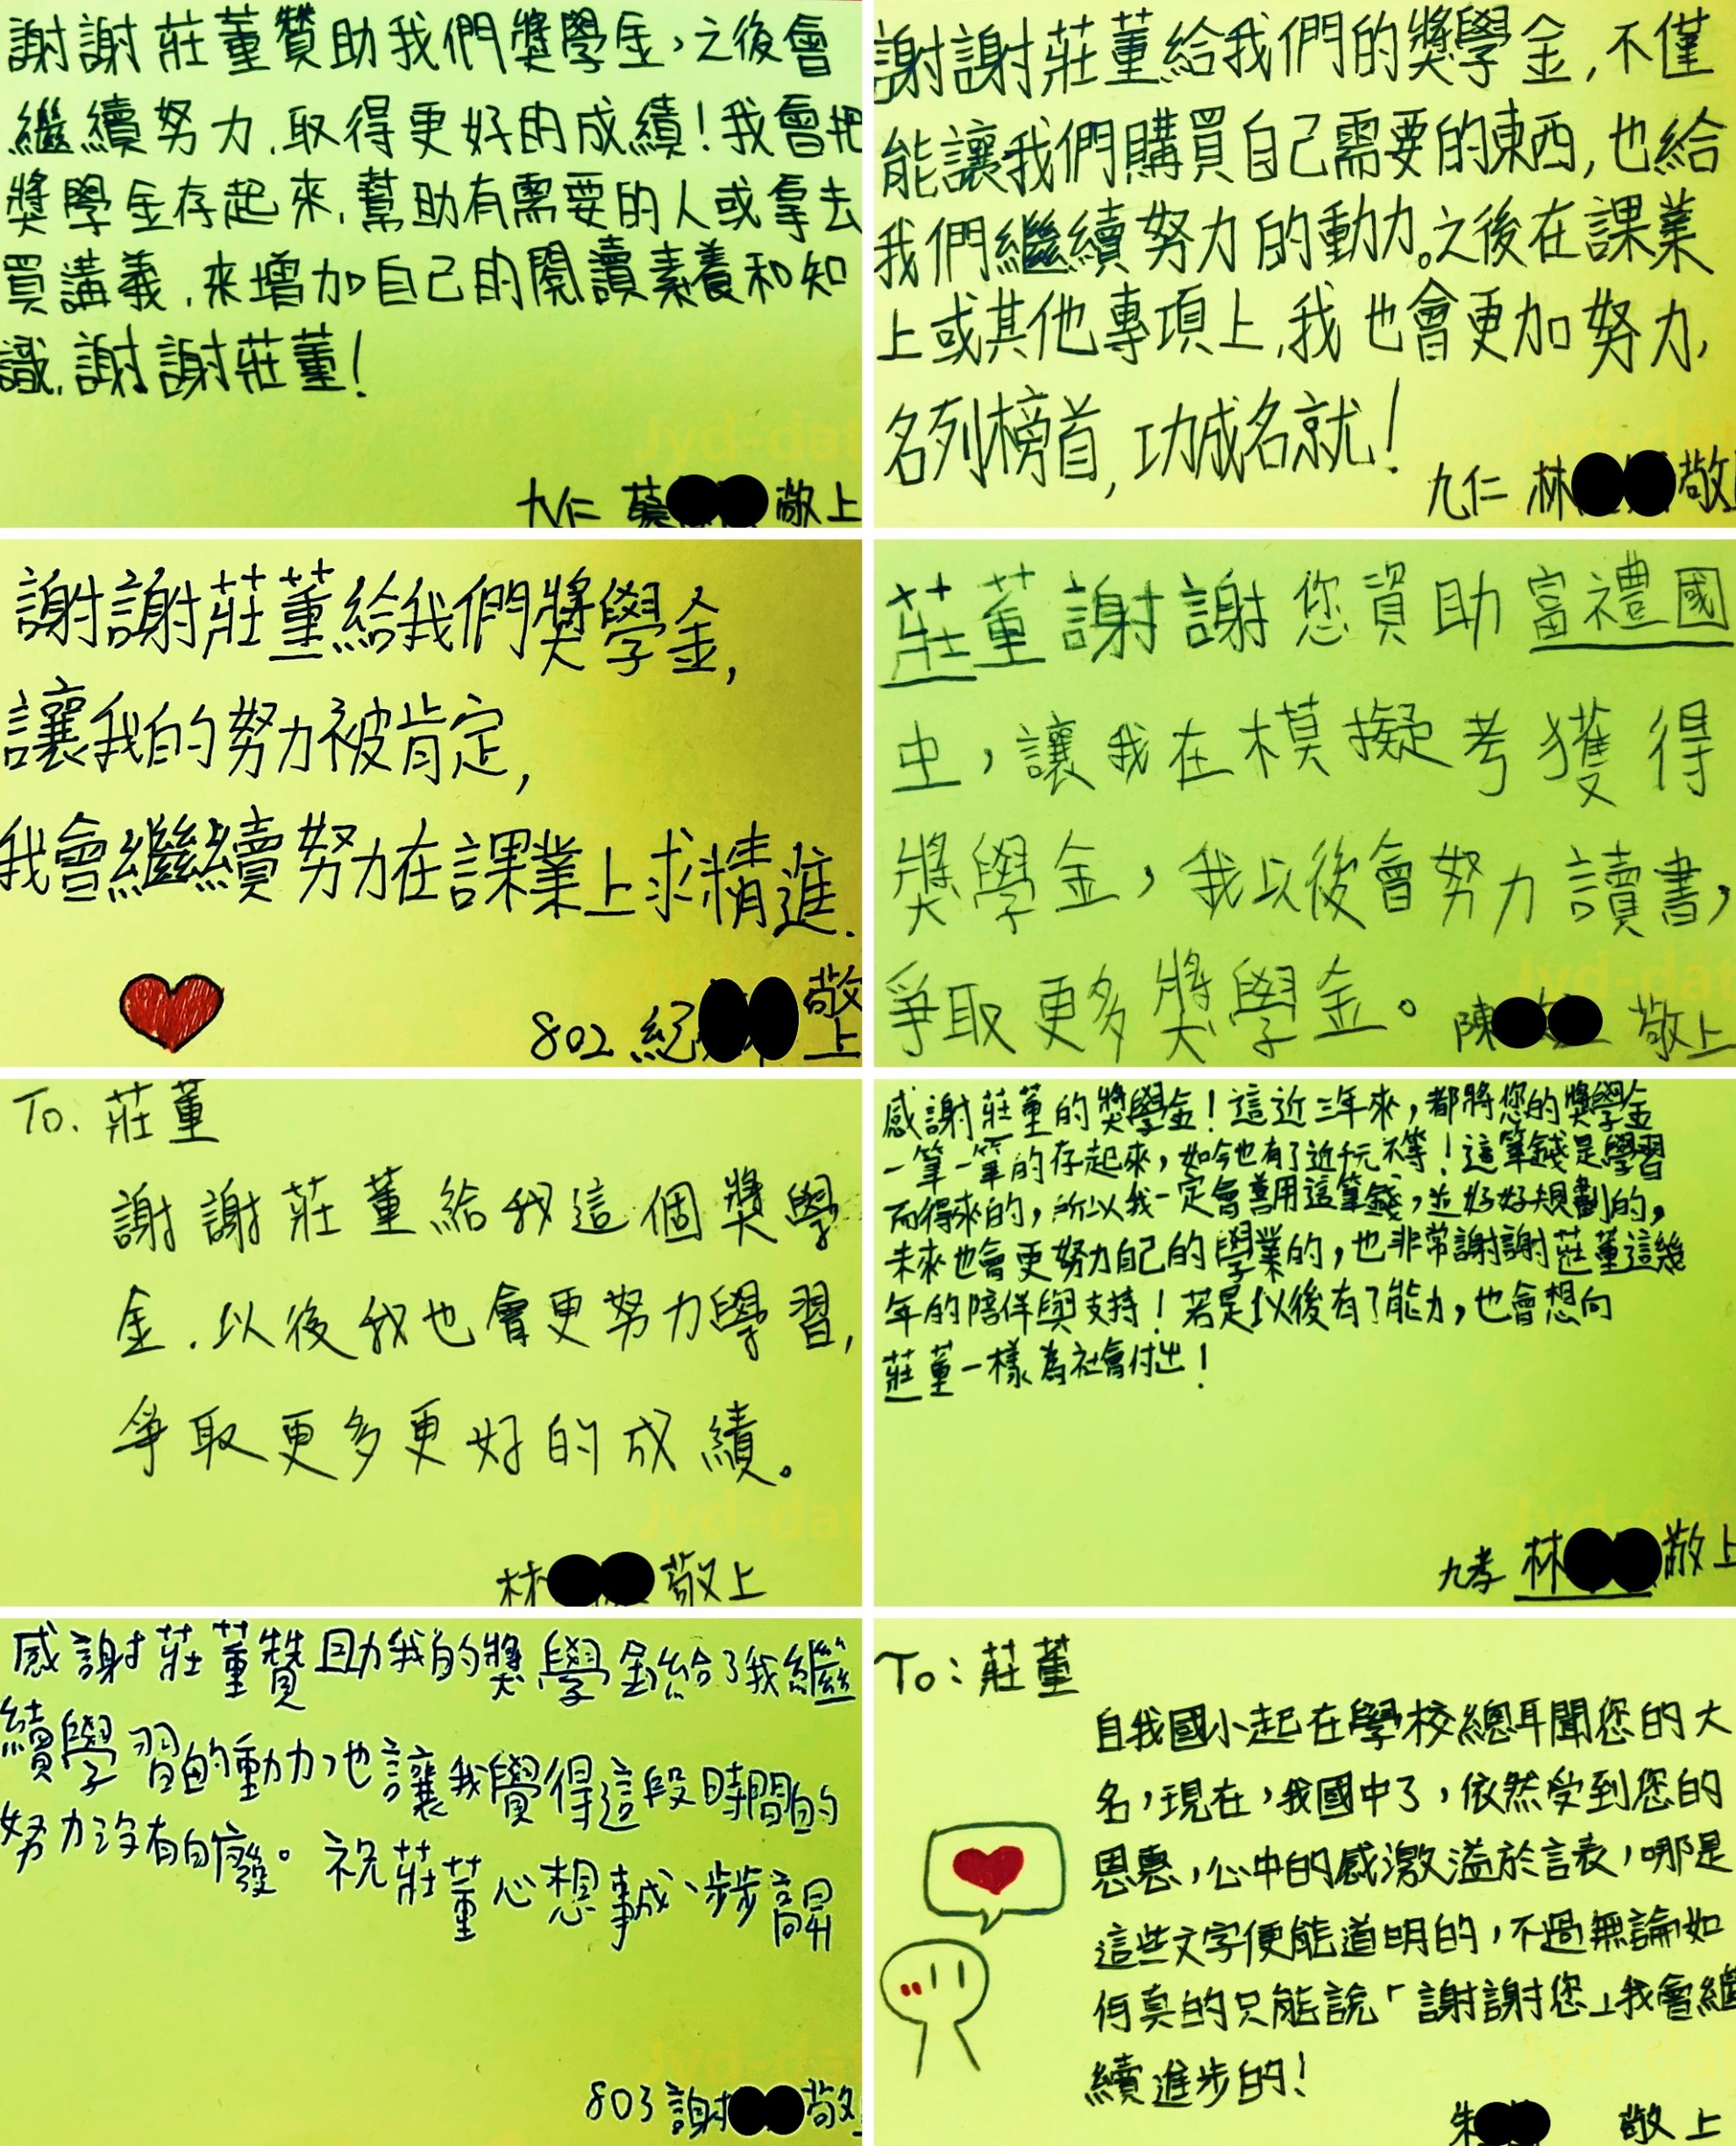 謝謝莊董贊助我們獎學金,之後會
繼續努力,取得更好的成績!我會把
獎學金存起來,幫助有需要的人或拿去
買講義,來增加自己的閱讀素養和知
識,謝謝莊董!
九仁 蔡 敬上
謝謝莊董給我們的獎學金,不僅
能讓我們購買自己需要的東西,也給
我們繼續努力的動力。之後在課業
上或其他專項上,我也會更加努力,
名列榜首,功成名就!
九仁 林 敬
謝謝莊董給我們獎學金,
讓我的努力被肯定,
我會繼續努力在課業上求精進.
802 紀 敬上
莊董謝謝您資助富禮國
中,讓我在模擬考獲得
獎學金,我以後會努力讀書,
爭取更多獎學金。
陳 敬上
To. 莊董
謝謝莊董給我這個獎學
金.以後我也會更努力學習,
爭取更多更好的成績。
林 敬上
感謝莊董的獎學金!這近三年來,都將您的獎學金
一筆一筆的存起來,如今也有了近千元不等!這筆錢是學習
而得來的,所以我一定會善用這筆錢,並好好規劃的,
未來也會更努力自己的學業的,也非常謝謝莊董這幾
年的陪伴與支持!若是以後有了能力,也會想向
莊董一樣為社會付出!
九孝 林 敬上
感謝莊董贊助我的獎學金給了我繼
續學習的動力,也讓我覺得這段時間的
努力沒有白廢。祝莊董心想事成、步步高昇
803 謝 敬
To:莊董
自我國小起在學校總耳聞您的大
名,現在,我國中了,依然受到您的
恩惠,心中的感激溢於言表,哪是
這些文字便能道明的,不過無論如
何真的只能說「謝謝您」我會繼
續進步的!
朱 敬上